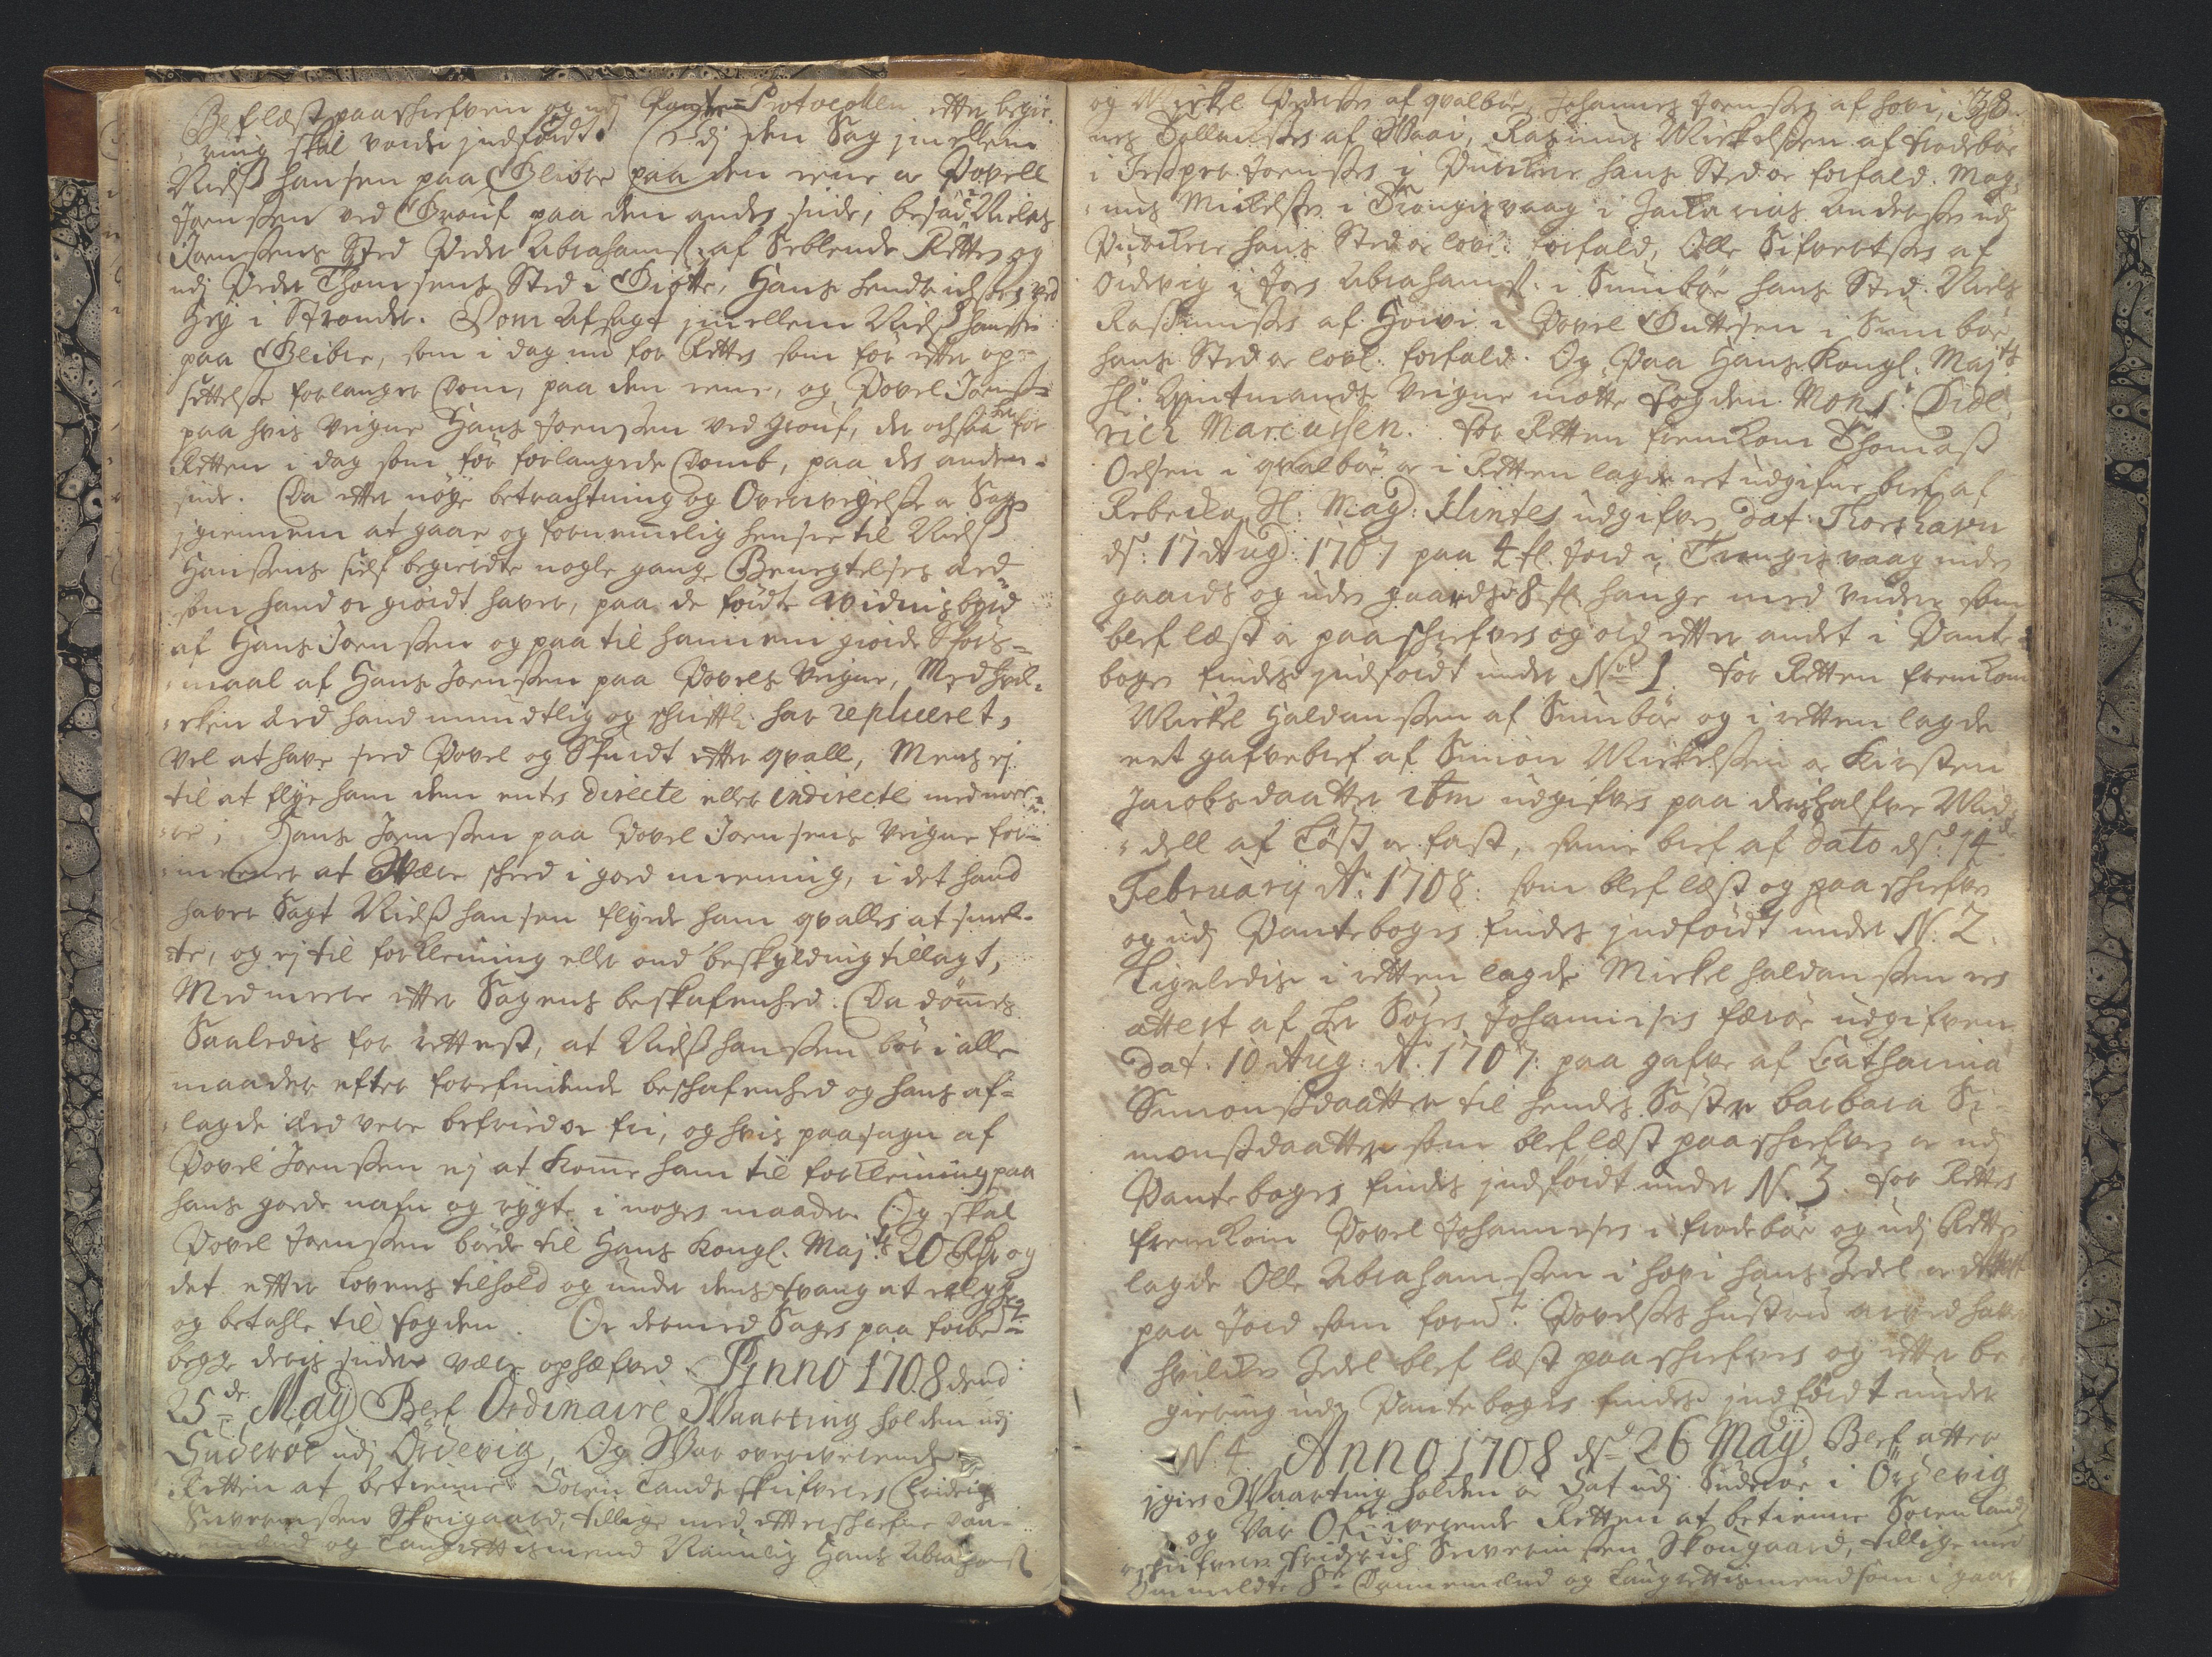 Blef læst paaschrefven og udj Pante-Protocollen efter begie-
ring skal vorde jndført. Udj den Sag jmellem
Nielß Hansen paa Glibre paa den eene oc Povell
Joensen ved Grouf paa den anden side, besad Nielß
Joensens Sted Peder Abrahamß. af Seblende Retten og
udj Peder Thomsens Sted i Giötte, Hans Hendrichsen ved
Høy i Strender. Dom Afsagt jmellem Nielß Hansen
paa Glibre, som i dag nu for Retten som før efter op-
settelse forlanger Dom, paa den eene, og Povel Joenß.
paa hvis Veigne Hans Joensen ved Grouf, der ochsaa her for
Retten i dag som før forlangede Domb, paa den anden
side. Da efter nøye betrachtning og Overveyelse oc Sagen
jgiennem at gaae og fornemmelig hensee til Nielß
Hansens self begierdte nogle gange Benegtelses Æed
som hand oc giordt haver, paa de førdte Vidnisbyrd
af Hans Joensen og paa til hannem giorde Spørs-
maal af Hans Joensen paa Povels Veigne, Med hvil-
cken Æed hand mundtlig og schriftl. har repliceret,
vel at have seed Povel og Schmidt efter qvall, Mens ej
til at flye ham dem enten directe eller indirecte med mee-
re; Hans Joensen paa Povel Joensens Veigne for-
meener at Være scheed i goed meening, i det hand
haver Sagt Nielß Hansen flyede ham qvallen at smel-
te, og ej til forkleining eller ond beskyldning tillagt,
Med meere efter Sagens beskafenhed. Da dømmes
Saaledis for rettest, at Nielß Hansen bør i alle
maader efter forefindende beschafenhed og hans af-
lagde Æed vere befried oc fri, og hvis paasagn af
Povel Joensen ej at komme ham til forkleining paa
hans goede nafn og rygte i nogen maader Og skal
Povel Joensen bøde til Hans Kongl. Majts 20 Rdr og
det efter Lovens tilhold og under dens tvang at erlegge
og betahle til fogden. Oc dermed Sagen paa forbete
begge deris sider være ophæfved. Anno 1708 dend
25de Maÿ Blef Ordinaire Vaarting holden udj
Suderøe udj Ördevig, Og Var oververende
Retten at betienne Soren Landschrifveren Friderich
Severinsen Skougaard, tillige med efterschrefne Dan-
nemend og Laugrettismend Nemlig Hans Abrahamß
og Mickel Pedersen af qvalbøe, Johannes Joensen af Hovi, 38
nes Sallansen af Waai, Rasmus Mickelsen af frodebøe
i Jesper Joensen i Punthre hans Sted oc forfald. Mag-
nus Mickelsen i Trongisvaag i Zacharias Andersen udj
Punthre hans Sted oc lovl. forfald, Olle Sifvertsen af
Ordevig i Joen Abrahamß. i Sumbøe hans Sted. Nielß
Rasmusen af Howi i Povel Guttesen i Sumboe
hans Sted oc lovl. forfald. Og Paa Hans Kongl. Majts
Hr. Amtmands Veigne møtte Fogden Monsr Dide-
rich Marcussen. For Retten fremkom Thomaß
Oelsen i qvalböe oc i Retten lagde et udgifne bref af
Rebecka Sl. Mag: Klintes udgifven dat: Thorshavn
ds: 17 Aug: 1707 paa 4 fl. Jord i Trongisvaag inden
gaards og uden gaards 8 sk. Hauge med videre som
blef læst oc paaschrefven og ord efter andet i Pante-
bogen findes jndfördt under No 1. For Retten fremkom
Mickel Haldansen af Sumbøe og i retten lagde
eet gafvebref af Simon Mickelsen oc Kirsten
Jacobsdaatter item udgifven paa den halfve Mid-
dell af Løst oc fast, samme bref af dato ds. 14de
Februarij Ao 1708. som blef læst og paaschrefven
og udj Pantebogen findes jndfördt under N. 2.
Ligeledise i retten lagde Mickel Haldansen en
attest af Hr Søren Johannesen Færøe udgifven
dat. 10 Aug: Ao. 1707: paa gafve af Catharina
Simonsdaatter til hendes Söster Barbara Si-
monsdaatter som blef læst paaschrefven oc udj
Pantebogen findes jndfördt under N. 3. For Retten
fremkom Povel Johannesen i frodebøe og udj Retten
lagde Olle Abrahamsen i Hovi hans Zedel oc Attest
paa Jord som fornt. Povelsens hustrue arvet haver
hvilcken Zedel blef læst paaschrefven og efter be-
giering udj Pantebogen findes jndfördt under
N. 4. Anno 1708 ds 26 Maÿ Blef atter
jgien Vaarting holden oc Sat udj Suderøe i Ördevig
og Var Ofververende Retten at betienne Soren Land-
schrifveren Friderich Severinsen Skougaard, tillige med
Ommeldte 8te Dannemænd og Laugrettismend som i gaar